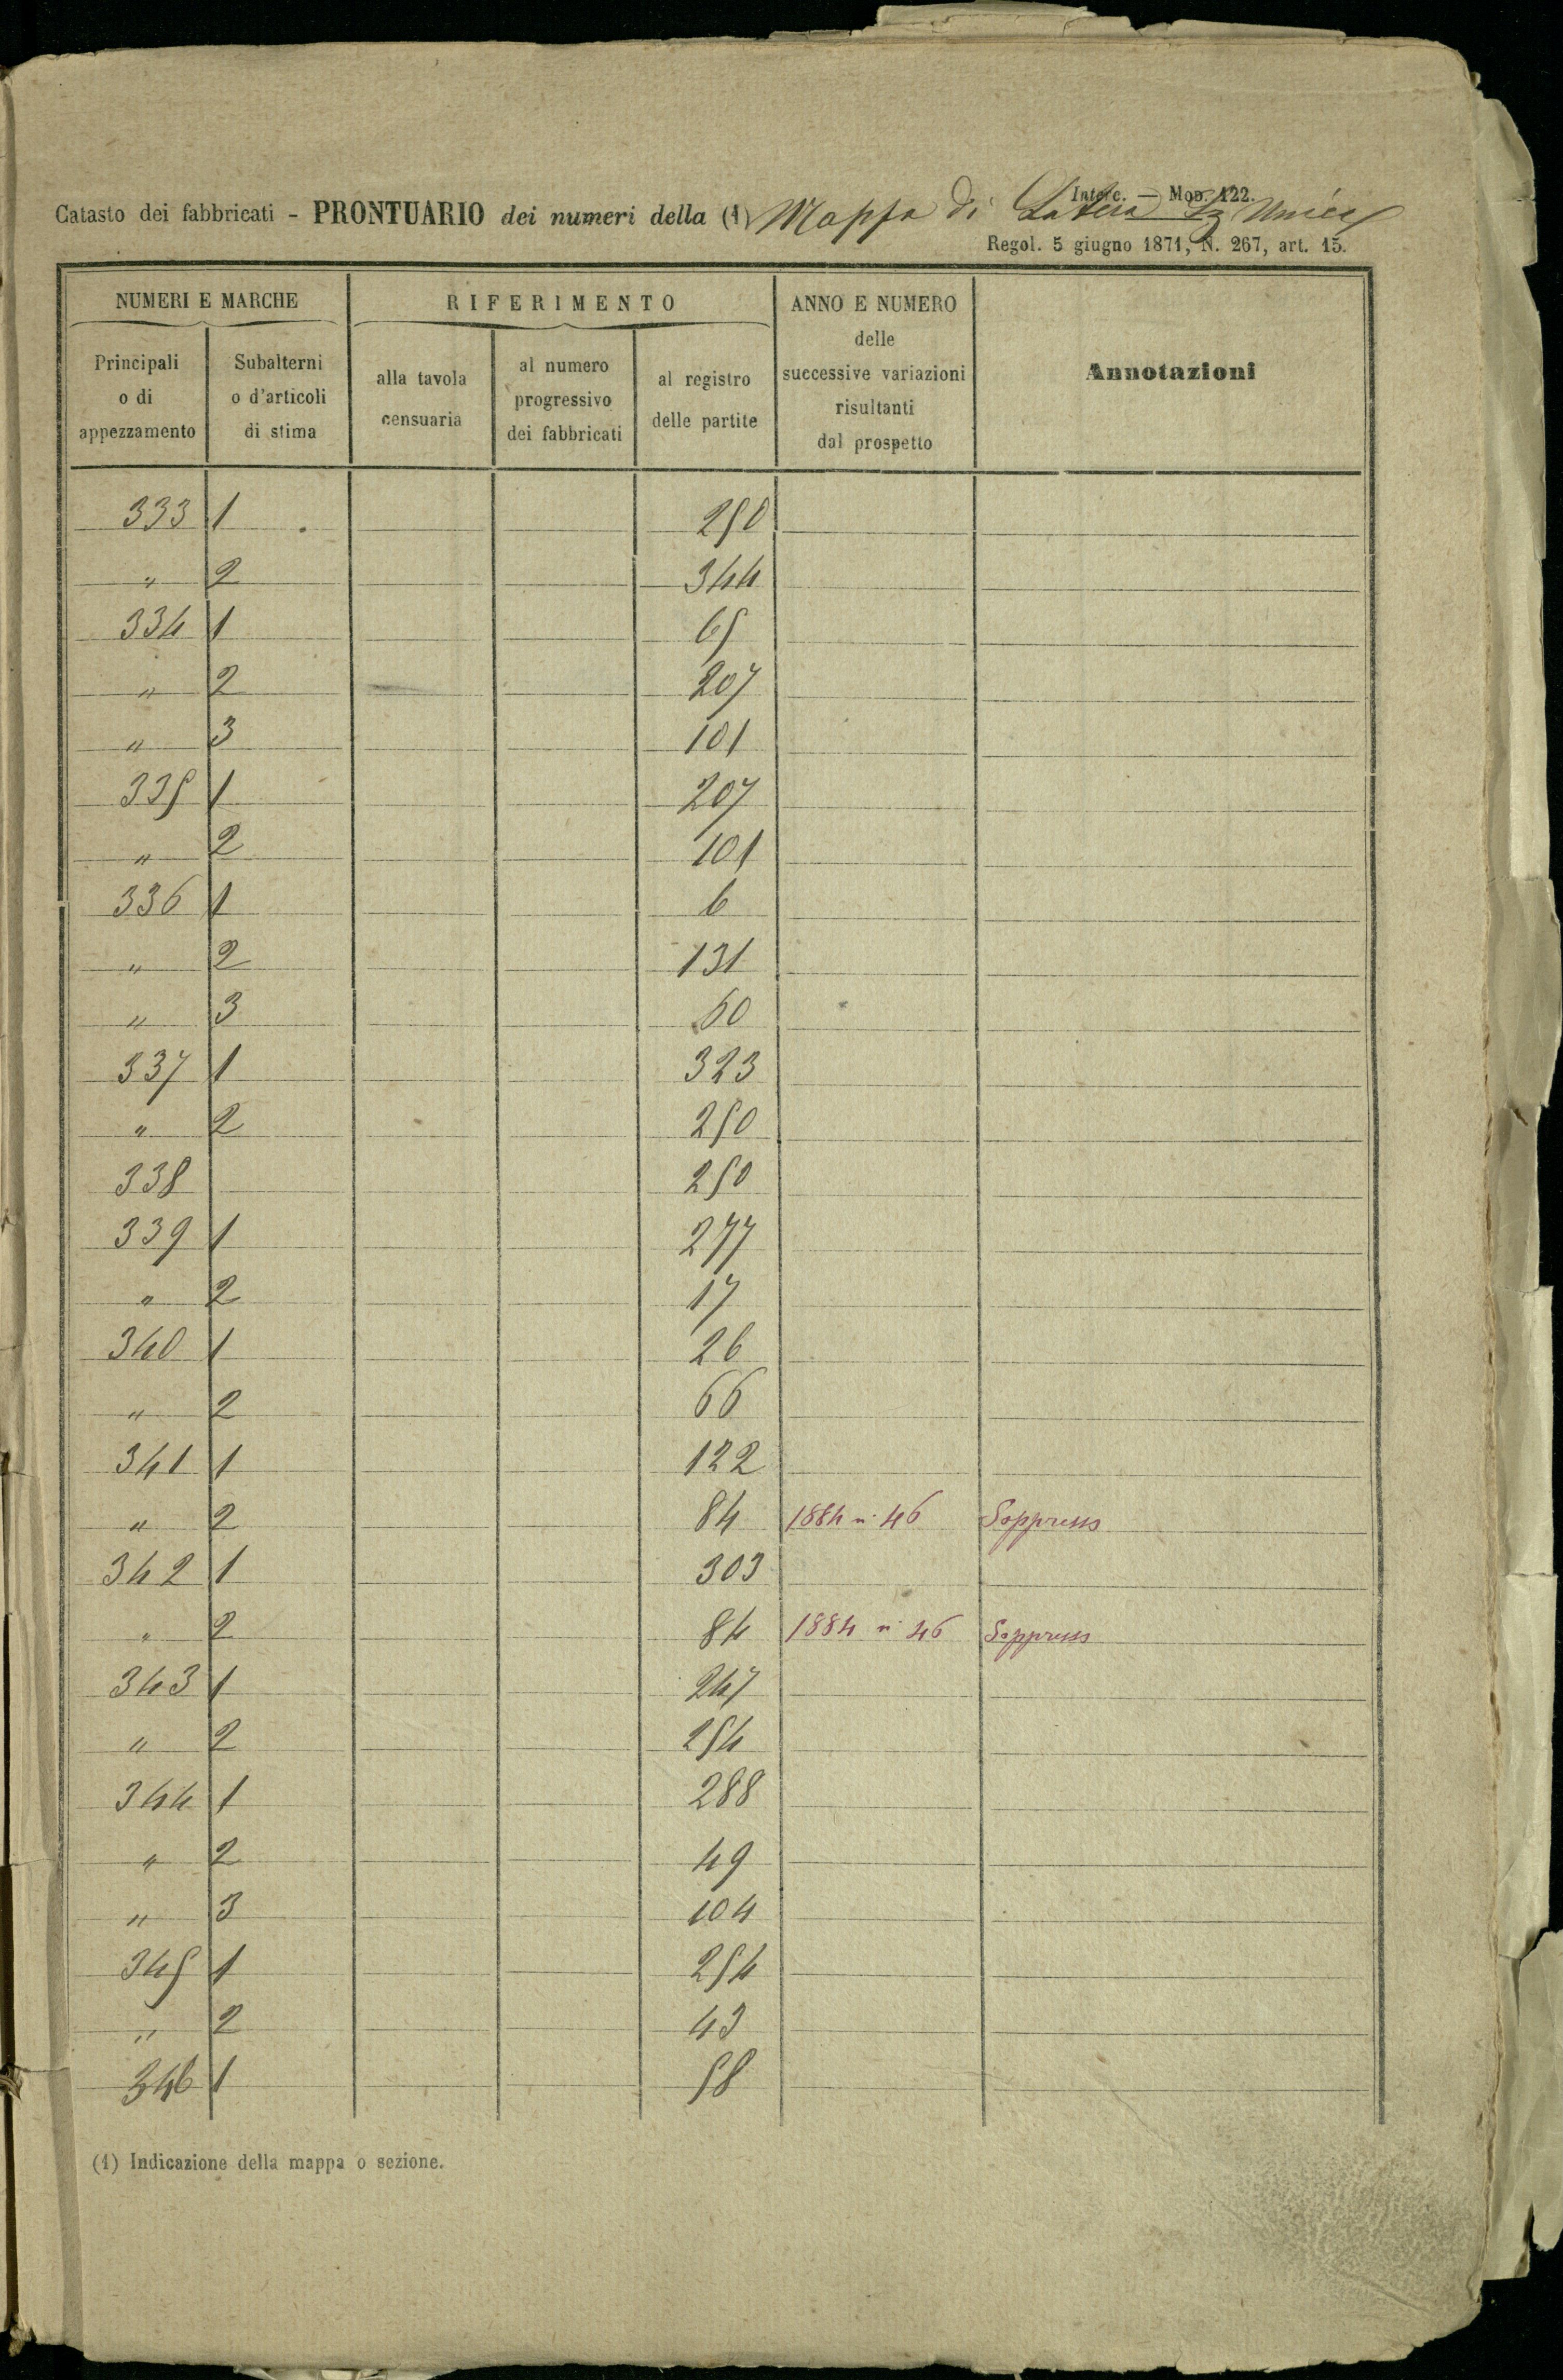 Interc. — Mod. 122.
Catasto dei fabbricati - PRONTUARIO dei numeri della (1) Mappa di Latera Sz Unica
Regol. 5 giugno 1871, N. 267, art. 15.
NUMERI E MARCHE RIFERIMENTO ANNO E NUMERO delle successive variazioni risultanti dal prospetto Annotazioni
Principali o di appezzamento Subalterni o d'articoli di stima alla tavola censuaria al numero progressivo dei fabbricati al registro delle partite
333 1 250
" 2 344
334 1 65
" 2 207
" 3 101
335 1 207
" 2 101
336 1 6
" 2 131
" 3 60
337 1 323
" 2 250
338 250
339 1 277
" 2 17
340 1 26
" 2 66
341 1 122
" 2 84 1884 n. 46 Soppresso
342 1 303
" 2 84 1884 n. 46 Soppresso
343 1 247
" 2 254
344 1 288
" 2 49
" 3 104
345 1 254
" 2 43
346 1 58
(1) Indicazione della mappa o sezione.